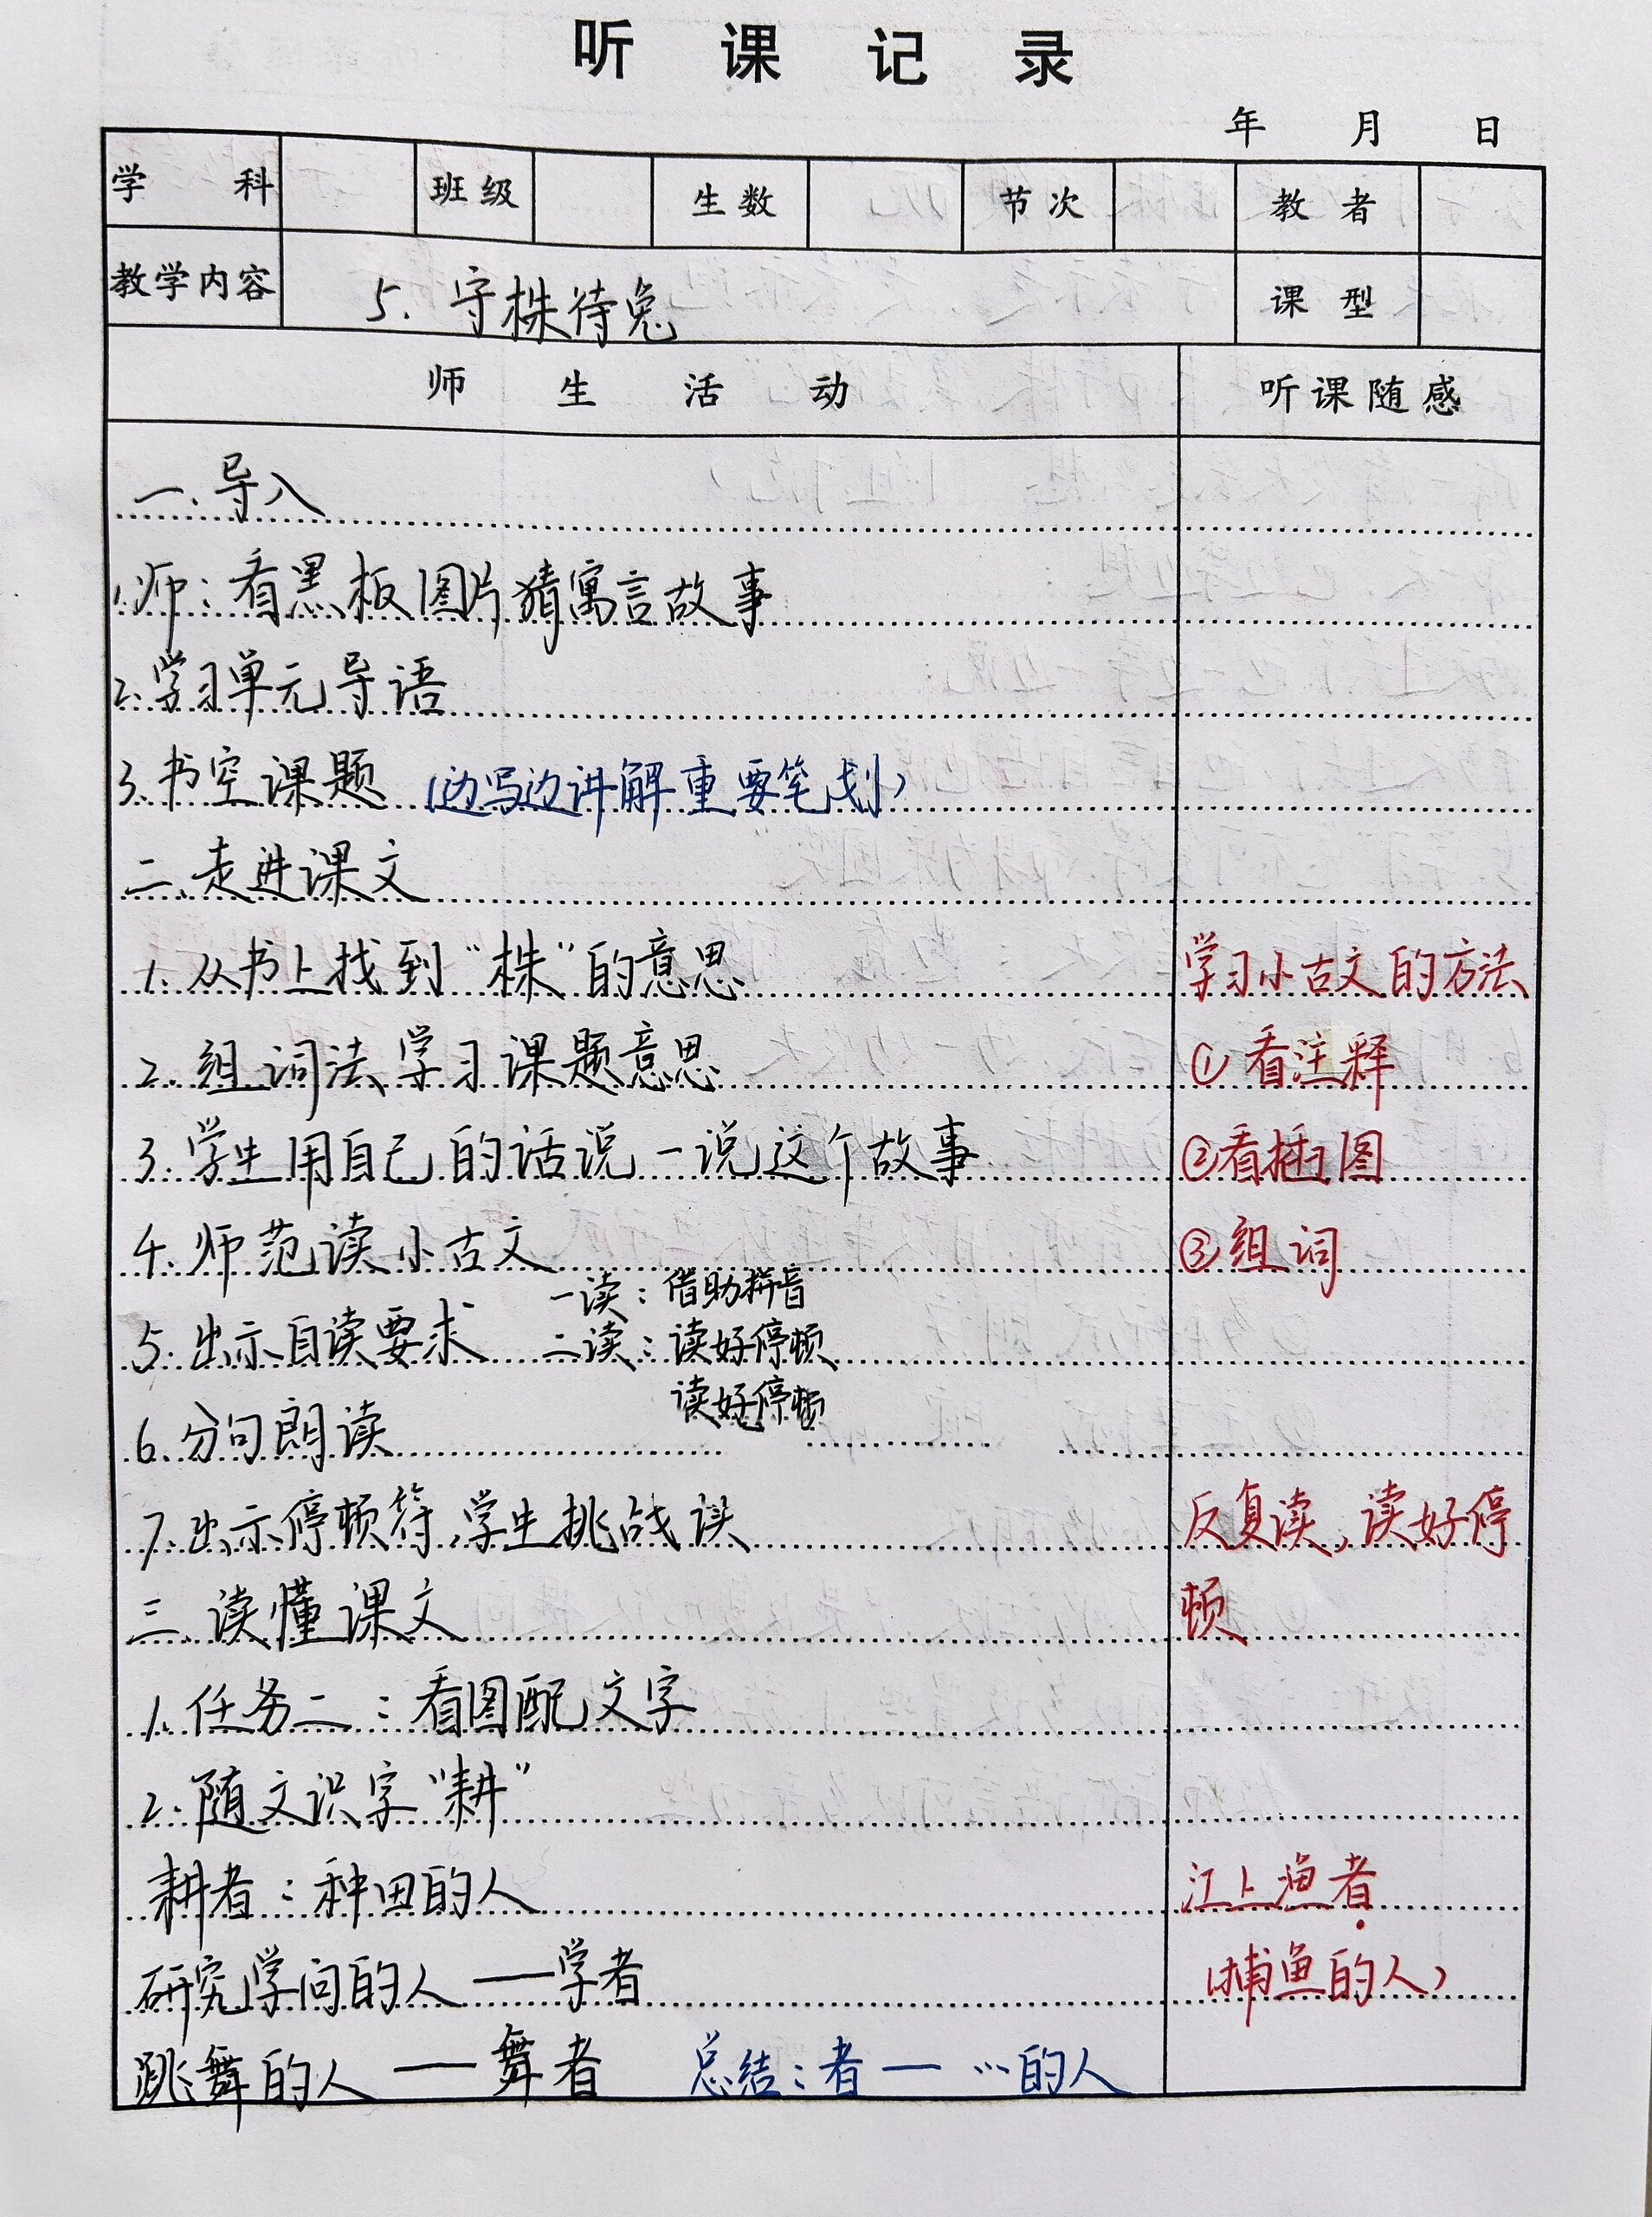 听课记录
年 月 日
学科 班级 生数 节次 教者
教学内容 5. 守株待兔 课型
师生活动 听课随感
一.导入
1.师:看黑板图片猜寓言故事
2.学习单元导语
3.书空课题 (边写边讲解重要笔划)
二.走进课文
1.从书上找到“株”的意思 学习小古文的方法
2.组词法学习课题意思 ①看注释
3.学生用自己的话说一说这个故事 ②看插图
4.师范读小古文 ③组词
一读:借助拼音
5.出示自读要求 二读:读好停顿
读好停顿
6.分句朗读
7.出示停顿符,学生挑战读 反复读,读好停
三.读懂课文 顿
1.任务二:看图配文字
2.随文识字“耕”
耕者:种田的人 江上渔者
研究学问的人——学者 (捕鱼的人)
跳舞的人——舞者 总结:者—…的人